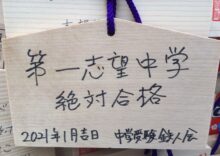 第一志望中学
絶対合格
2021年1月吉日 中学受験 鉄人会